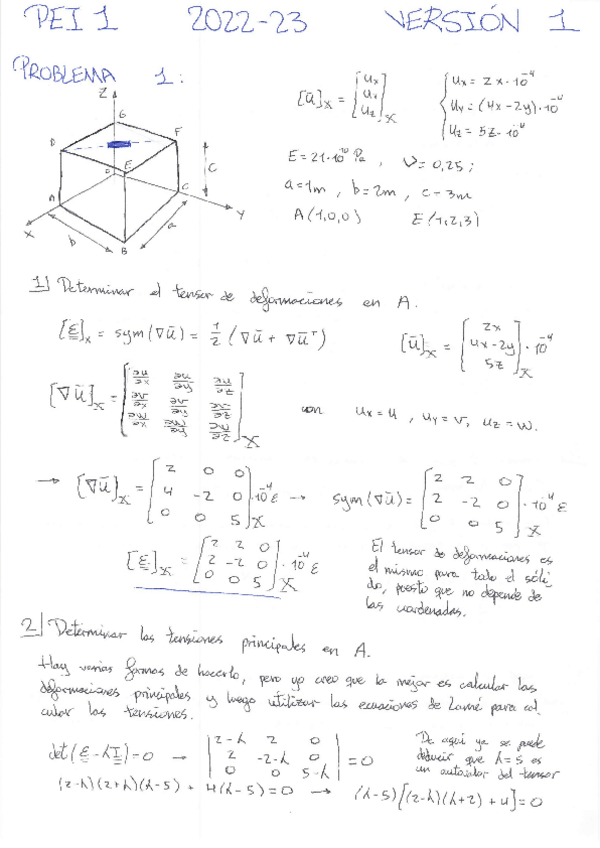 PEI 1 2022-23 VERSIÓN 1
PROBLEMA 1:
[ū]x = [ux uy uz]x { ux = 2x·10⁻⁴
uy = (4x-2y)·10⁻⁴
uz = 5z·10⁻⁴
E = 21·10¹⁰ Pa , ν = 0,25 ;
a = 1m , b = 2m , c = 3m
A(1,0,0) E(1,2,3)
Z G D F E O C A B X Y a b c
1) Determinar el tensor de deformaciones en A.
[ε]x = sym(∇ū) = 1/2 (∇ū + ∇ūᵀ) [ū]x = [2x 4x-2y 5z]x ·10⁻⁴
[∇ū]x = [∂u/∂x ∂u/∂y ∂u/∂z
∂v/∂x ∂v/∂y ∂v/∂z
∂w/∂x ∂w/∂y ∂w/∂z]x con ux = u , uy = v, uz = w.
→ [∇ū]x = [2 0 0
4 -2 0
0 0 5]x ·10⁻⁴ ε → sym(∇ū) = [2 2 0
2 -2 0
0 0 5]x ·10⁻⁴ ε
[ε]x = [2 2 0
2 -2 0
0 0 5]x ·10⁻⁴ ε
El tensor de deformaciones es
el mismo para todo el sóli-
do, puesto que no depende de
las coordenadas.
2) Determinar las tensiones principales en A.
Hay varias formas de hacerlo, pero yo creo que la mejor es calcular las
deformaciones principales y luego utilizar las ecuaciones de Lamé para cal
cular las tensiones.
det(ε - λI) = 0 → |2-λ 2 0
2 -2-λ 0
0 0 5-λ| = 0
De aquí ya se puede
deducir que λ=5 es
un autovalor del tensor
(2-λ)(2+λ)(λ-5) + 4(λ-5) = 0 → (λ-5)[(2-λ)(λ+2) + 4] = 0